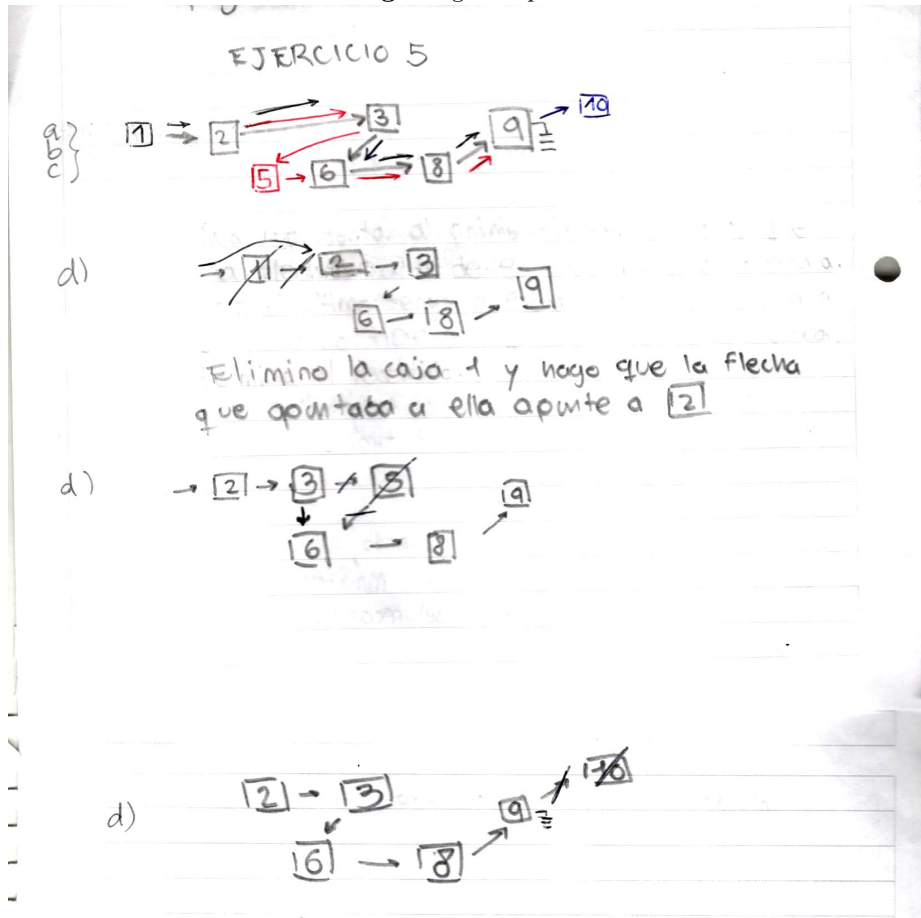 EJERCICIO 5
a
b
c
1 2 3 9 10
5 6 8
d) 1 2 3
6 8 9
Elimino la caja 1 y hago que la flecha
que apuntaba a ella apunte a 2
d) 2 3 5 9
6 8
d) 2 3 9 10
6 8